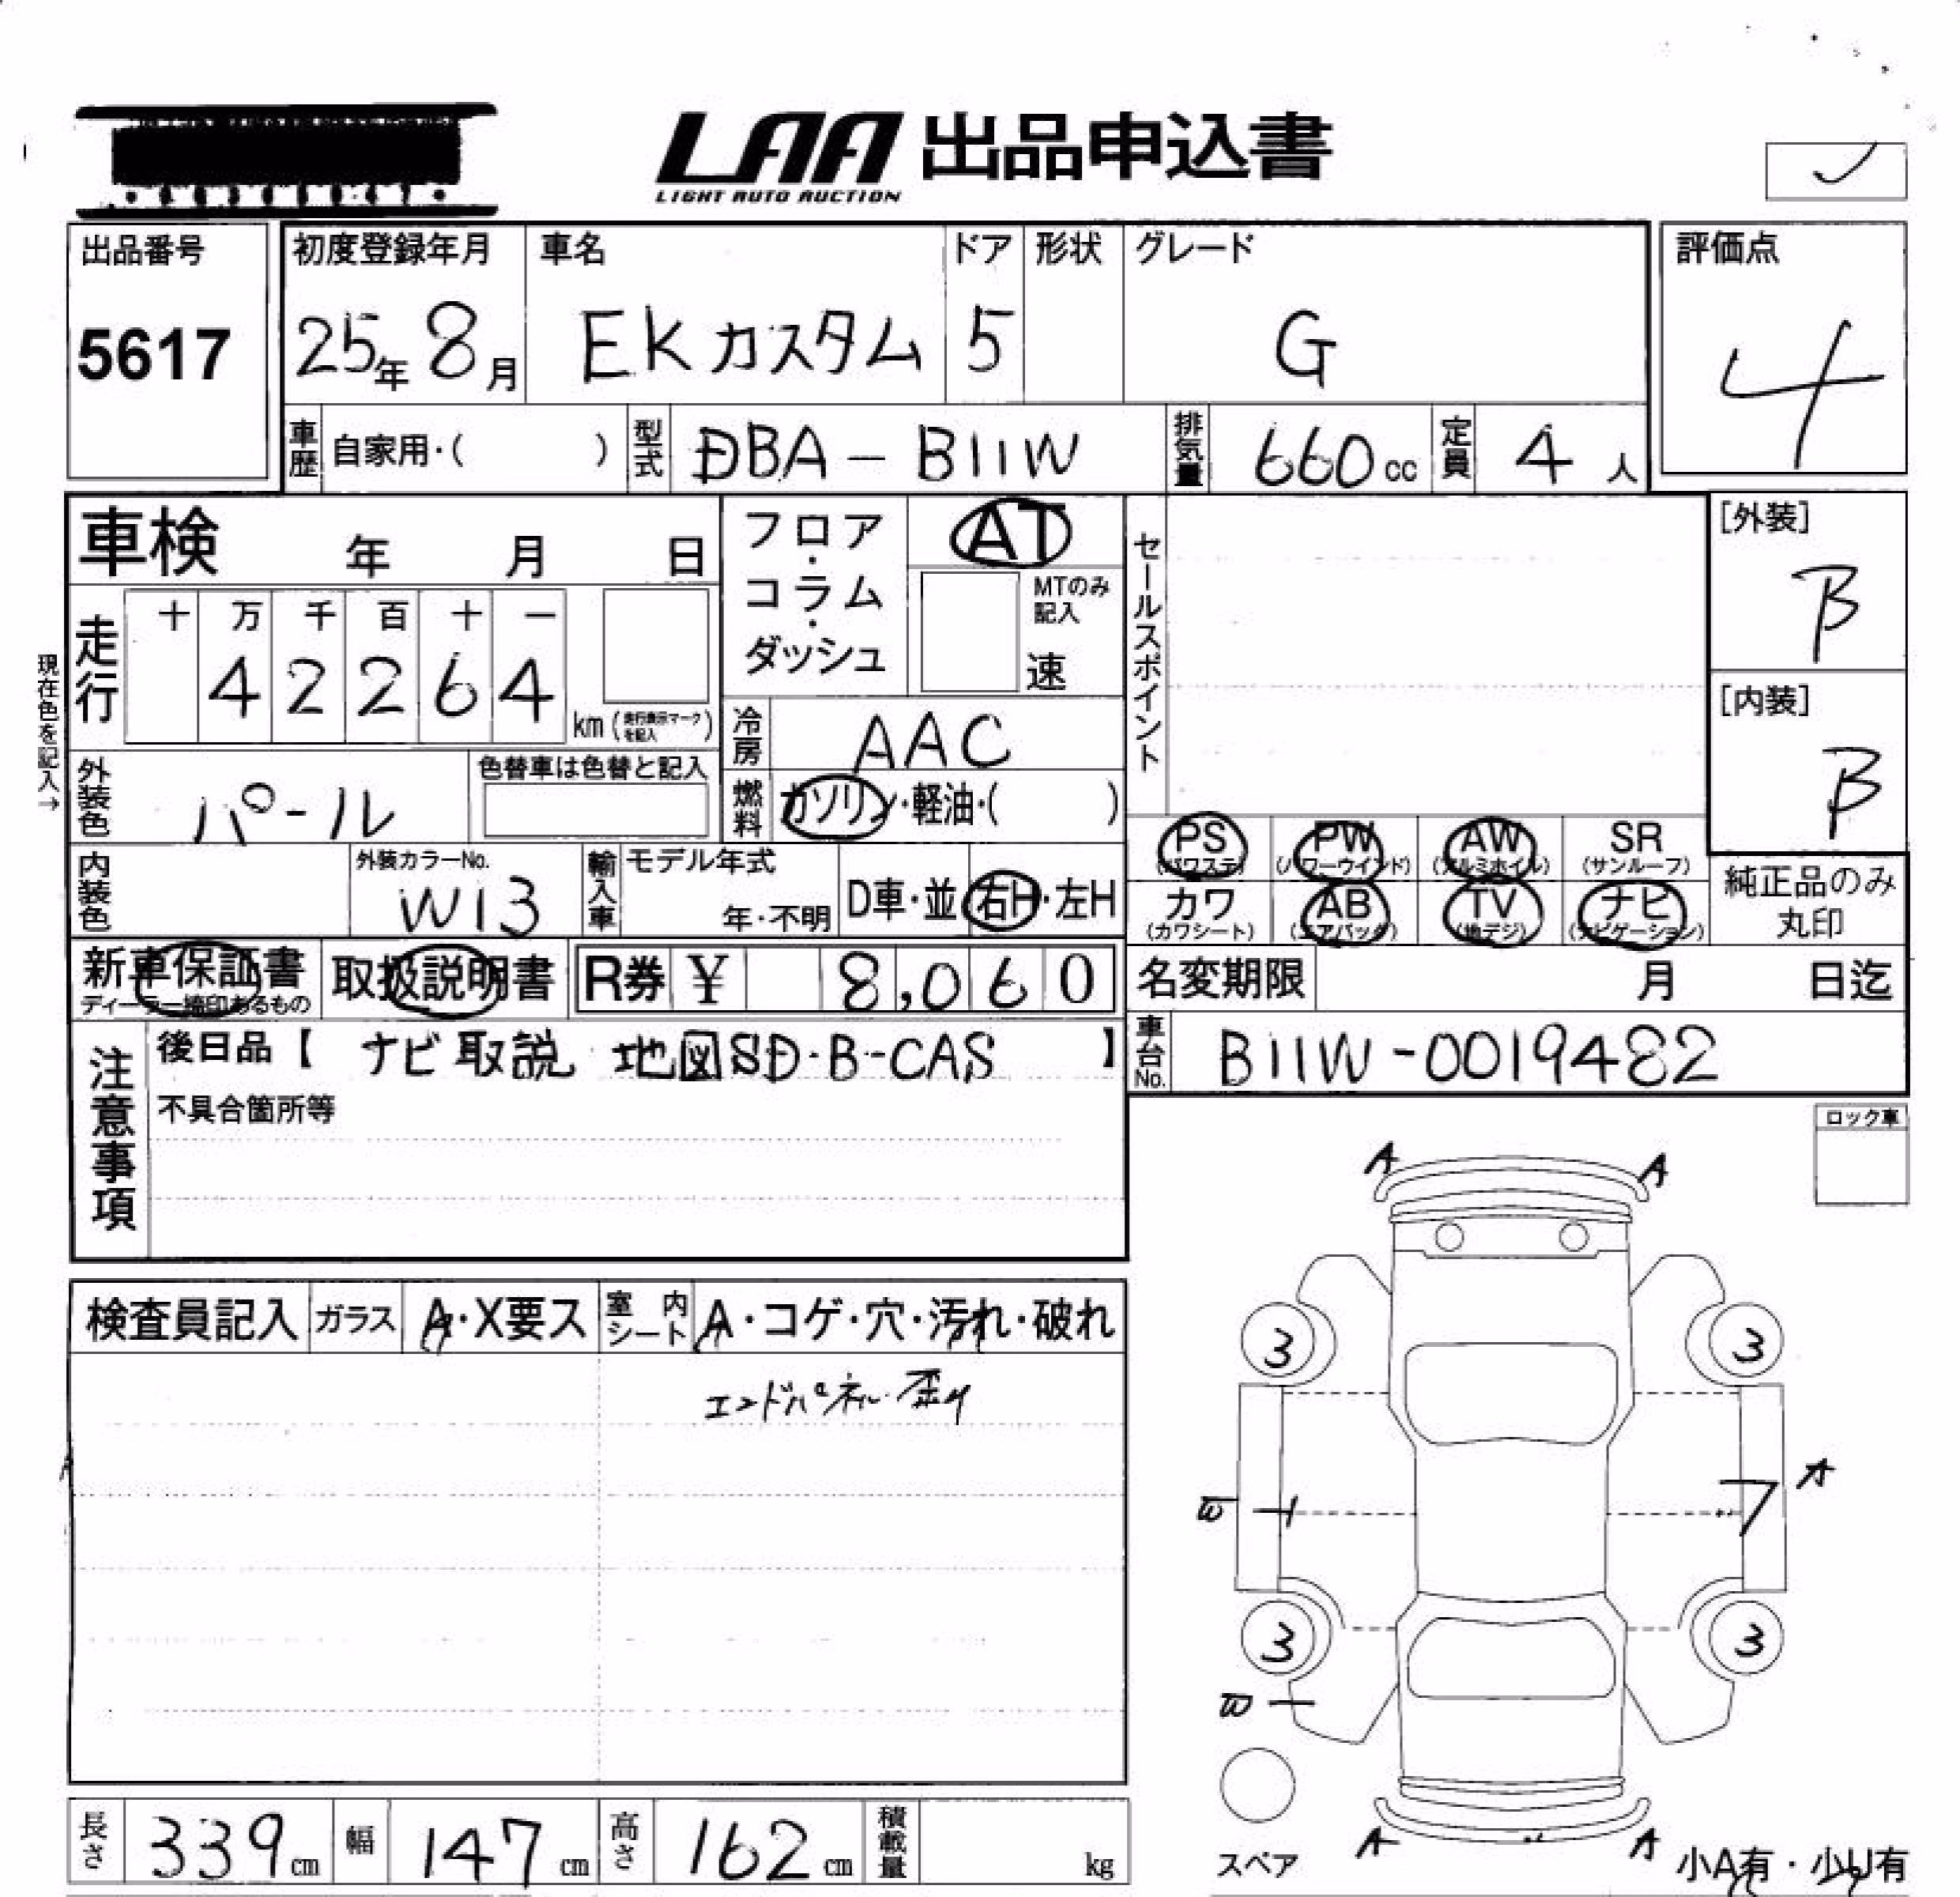 LAA 出品申込書
LIGHT AUTO AUCTION
出品番号 初度登録年月 車名 ドア 形状 グレード 評価点
5617 25年 8月 EKカスタム 5 G 4
車歴 自家用・( ) 型式 DBA-B11W 排気量 660cc 定員 4人
車検 年 月 日
フロア・コラム・ダッシュ
AT
MTのみ記入
速
セールスポイント
[外装]
B
[内装]
B
現在色を記入→
走行 十 万 千 百 十 一
4 2 2 6 4
km (走行表示マークを記入)
冷房 AAC
外装色 パール
色替車は色替と記入
燃料 ガソリン・軽油・( )
PS (パワステ) PW (パワーウインド) AW (アルミホイル) SR (サンルーフ)
内装色
外装カラーNo.
W13
輸入車 モデル年式
年・不明
D車・並 右H・左H
カワ (カワシート) AB (エアバッグ) TV (地デジ) ナビ (ナビゲーション)
純正品のみ
丸印
新車保証書
ディーラー捺印あるもの
取扱説明書
R券 ¥ 8,060
名変期限 月 日迄
注意事項
後日品【 ナビ取説 地図SD・B-CAS 】
車台No. B11W-0019482
不具合箇所等
ロック車
検査員記入 ガラス A・X要ス 室内シート A・コゲ・穴・汚れ・破れ
エンドパネル歪み
A A
3 3
A
3 3
A A
スペア
小A有・少U有
長さ 339cm 幅 147cm 高さ 162cm 積載量 kg